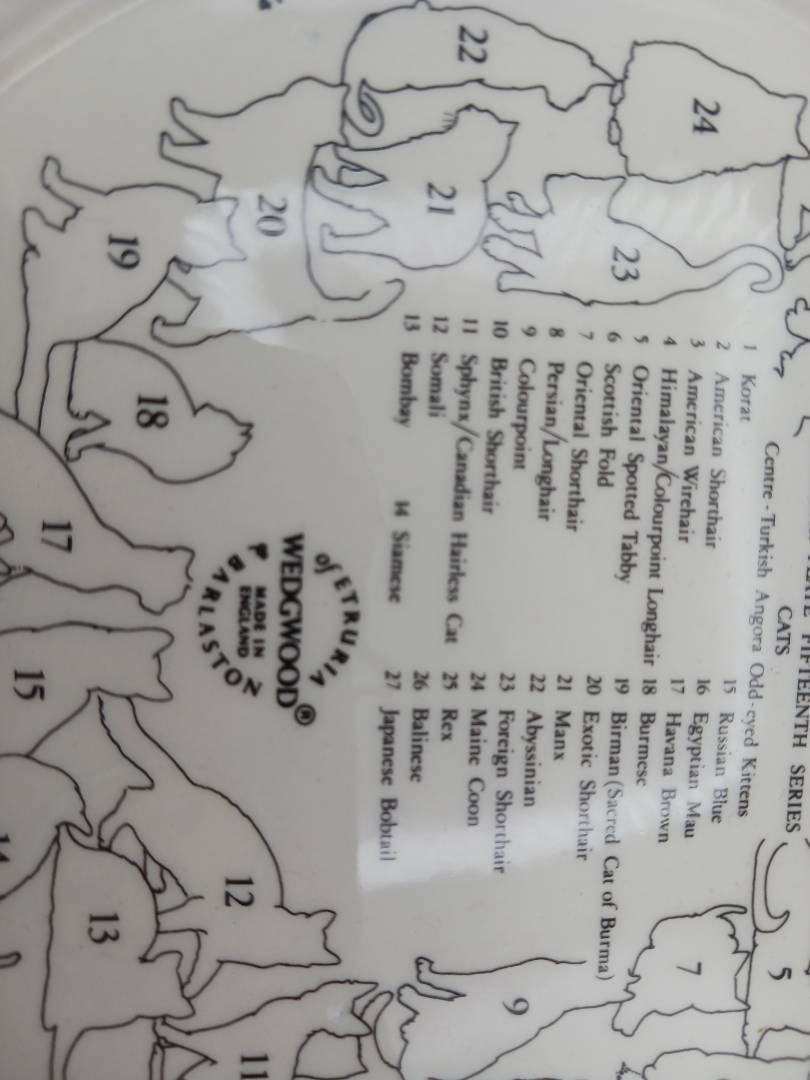 FIFTEENTH SERIES
CATS
Centre - Turkish Angora Odd-eyed Kittens
1 Korat
2 American Shorthair
3 American Wirehair
4 Himalayan/Colourpoint Longhair
5 Oriental Spotted Tabby
6 Scottish Fold
7 Oriental Shorthair
8 Persian/Longhair
9 Colourpoint
10 British Shorthair
11 Sphynx/Canadian Hairless Cat
12 Somali
13 Bombay
14 Siamese
15 Russian Blue
16 Egyptian Mau
17 Havana Brown
18 Burmese
19 Birman (Sacred Cat of Burma)
20 Exotic Shorthair
21 Manx
22 Abyssinian
23 Foreign Shorthair
24 Maine Coon
25 Rex
26 Balinese
27 Japanese Bobtail
of ETRURIA
WEDGWOOD®
MADE IN
ENGLAND
& BARLASTON
24
22
23
21
20
19
18
17
15
14
13
12
11
9
7
5